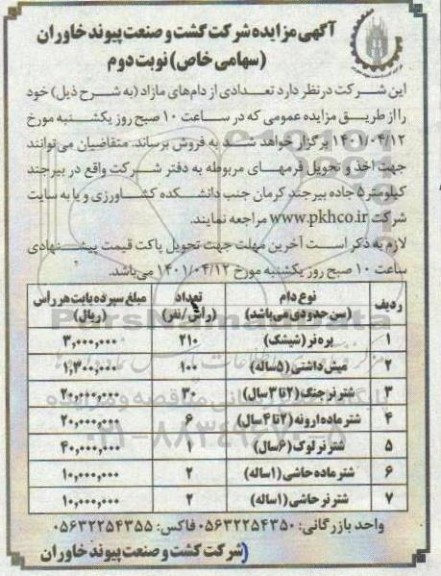 آگهی مزایده شرکت کشت و صنعت پیوند خاوران
(سهامی خاص) نوبت دوم
این شرکت در نظر دارد تعدادی از دام‌های مازاد (به شرح ذیل) خود
را از طریق مزایده عمومی که در ساعت ۱۰ صبح روز یکشنبه مورخ
۱۴۰۱/۰۴/۱۲ برگزار خواهد شد به فروش برساند. متقاضیان می‌توانند
جهت اخذ و تحویل فرمهای مربوطه به دفتر شرکت واقع در بیرجند
کیلومتر ۵ جاده بیرجند کرمان جنب دانشکده کشاورزی و یا به سایت
شرکت www.pkhco.ir مراجعه نمایند.
لازم به ذکر است آخرین مهلت جهت تحویل پاکت قیمت پیشنهادی
ساعت ۱۰ صبح روز یکشنبه مورخ ۱۴۰۱/۰۴/۱۲ می‌باشد.
ردیف نوع دام (سن حدودی می‌باشد) تعداد (راس/نفر) مبلغ سپرده بابت هر رأس (ریال)
۱ بره نر (شیشک) ۲۱۰ ۳,۰۰۰,۰۰۰
۲ میش داشتی (۵ ساله) ۱۰۰ ۱,۳۰۰,۰۰۰
۳ شتر نر جنگ (۲ تا ۳ سال) ۳۰ ۲۰,۰۰۰,۰۰۰
۴ شتر ماده ارونه (۲ تا ۴ سال) ۶ ۲۰,۰۰۰,۰۰۰
۵ شتر نر لوک (۶ سال) ۱ ۴۰,۰۰۰,۰۰۰
۶ شتر ماده حاشی (۱ ساله) ۲ ۱۰,۰۰۰,۰۰۰
۷ شتر نر حاشی (۱ ساله) ۲ ۱۰,۰۰۰,۰۰۰
واحد بازرگانی: ۰۵۶۳۲۲۵۴۳۵۰ فاکس: ۰۵۶۳۲۲۵۴۳۵۵
شرکت کشت و صنعت پیوند خاوران